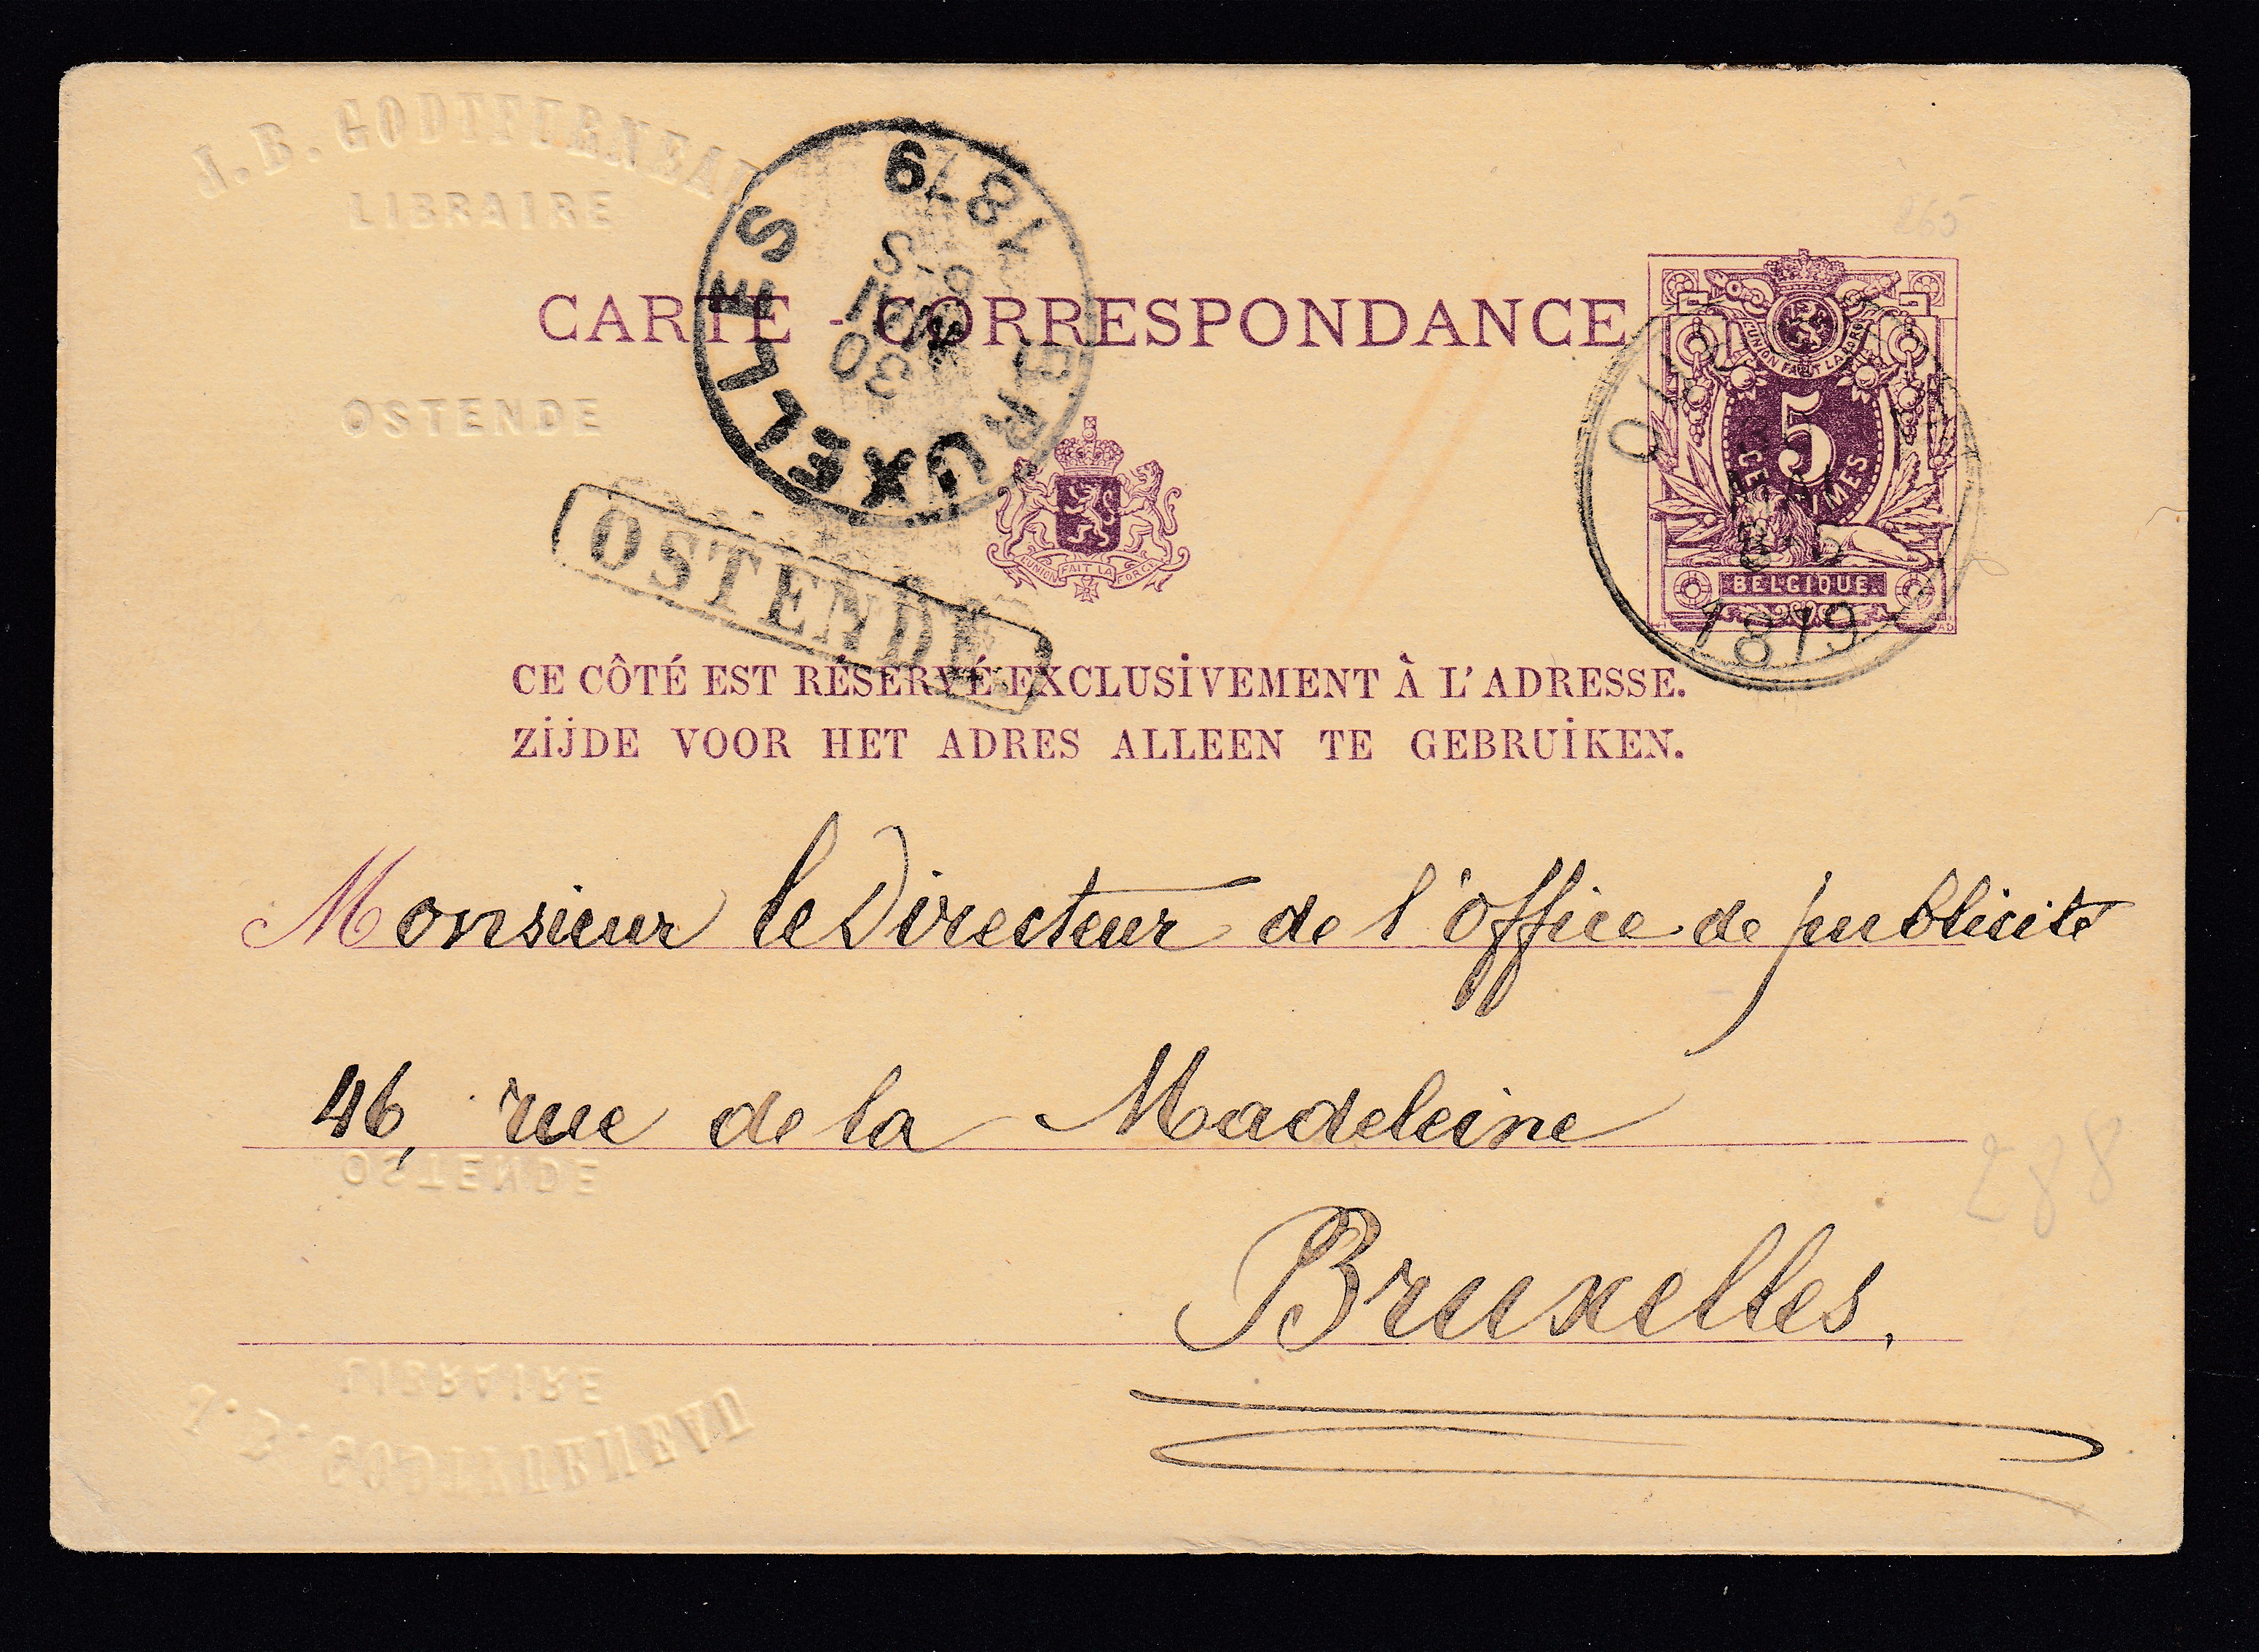 J. B. GODTFURNEAU
LIBRAIRE
OSTENDE
BRUXELLES
30
1879
265
CARTE - CORRESPONDANCE
L'UNION FAIT LA FORCE
5
CENTIMES
BELGIQUE
1879
L'UNION FAIT LA FORCE
OSTENDE
CE CÔTÉ EST RÉSERVÉ EXCLUSIVEMENT À L'ADRESSE.
ZIJDE VOOR HET ADRES ALLEEN TE GEBRUIKEN.
Monsieur le Directeur de l'office de publicité
46, rue de la Madeleine
OSTENDE
288
Bruxelles.
LIBRAIRE
J. B. GODTFURNEAU